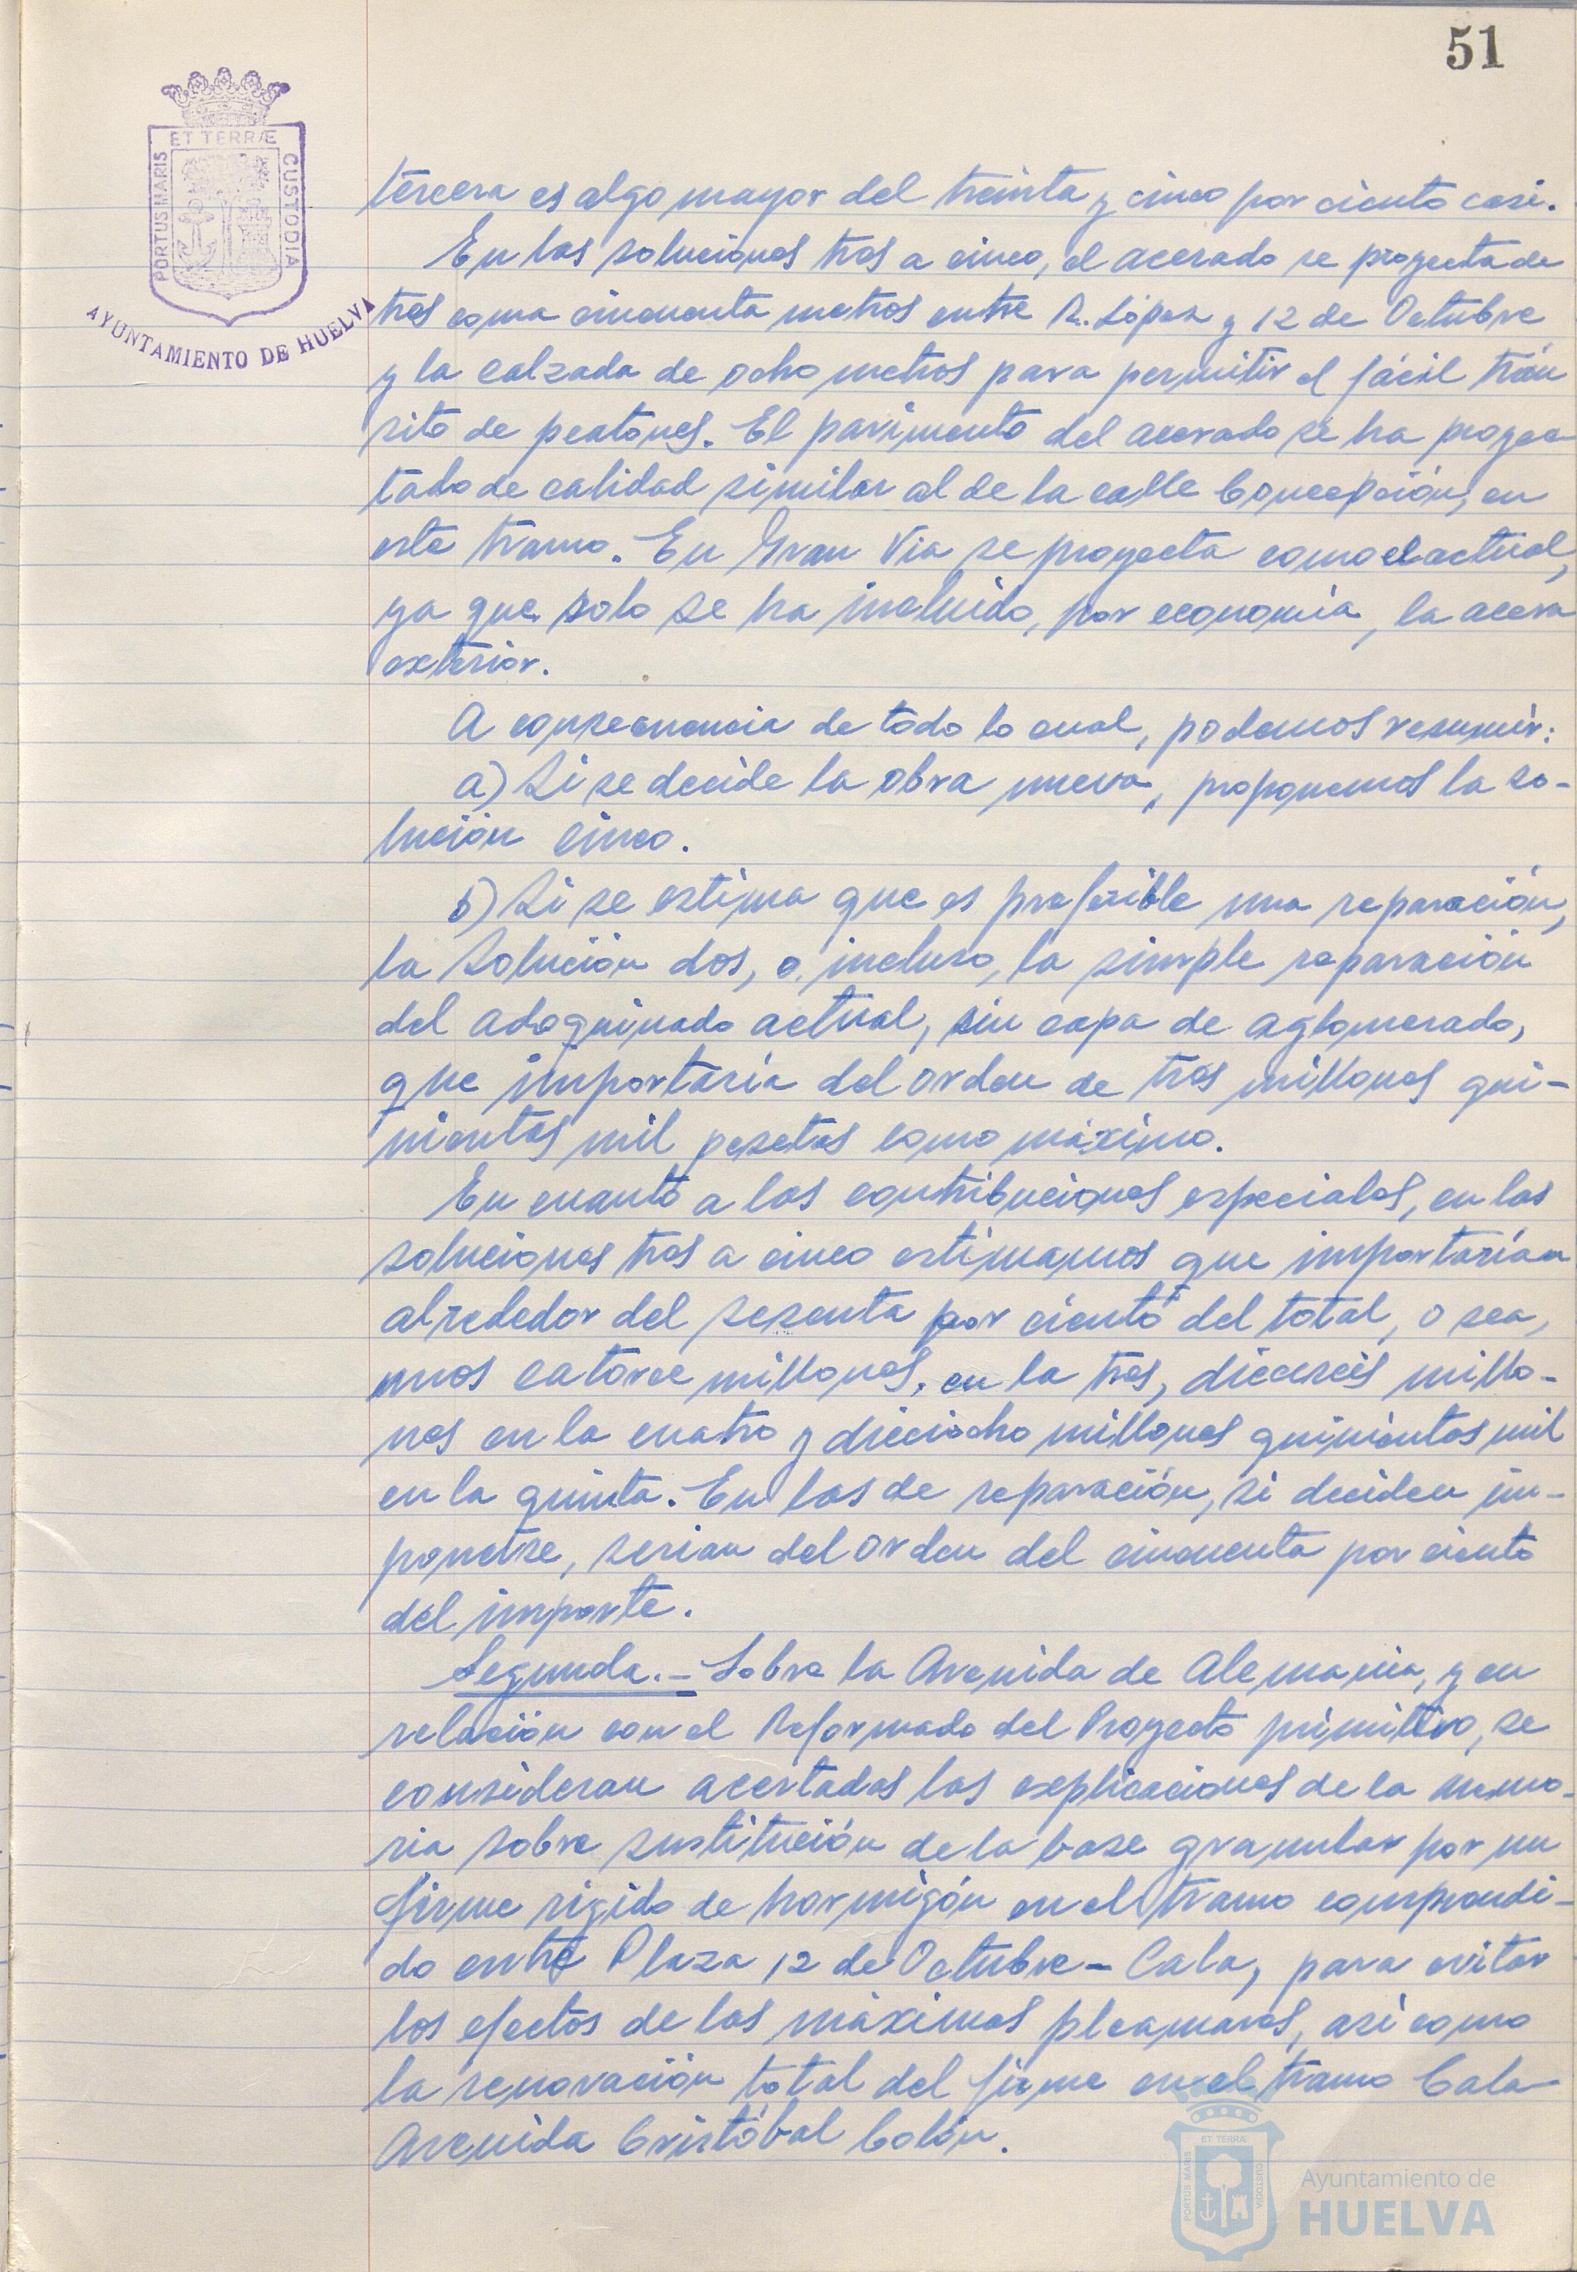 51
ET TERRÆ
PORTUS MARIS
CUSTODIA
AYUNTAMIENTO DE HUELVA
tercera es algo mayor del treinta y cinco por ciento casi.
En las soluciones tres a cinco, el acerado se proyecta de
tres coma cincuenta metros entre R. López y 12 de Octubre
y la calzada de ocho metros para permitir el fácil trán
sito de peatones. El pavimento del acerado se ha proyec-
tado de calidad similar al de la calle Concepción, en
este tramo. En Gran Via se proyecta como el actual,
ya que solo se ha incluido, por economía, la acera
exterior.
A consecuencia de todo lo cual, podemos resumir:
a) Si se decide la obra nueva, proponemos la so-
lución cinco.
b) Si se estima que es preferible una reparación,
la Solución dos, o incluso, la simple reparación
del adoquinado actual, sin capa de aglomerado,
que importaría del orden de tres millones qui-
nientas mil pesetas como máximo.
En cuanto a las contribuciones especiales, en las
soluciones tres a cinco estimamos que importarían
alrededor del sesenta por ciento del total, o sea,
unos catorce millones, en la tres, dieciseis millo-
nes en la cuatro y dieciocho millones quinientas mil
en la quinta. En las de reparación, si deciden im-
ponerse, serian del orden del cincuenta por ciento
del importe.
Segunda.- Sobre la Avenida de Alemania, y en
relación con el Reformado del Proyecto primitivo, se
consideran acertadas las explicaciones de la memo-
ria sobre sustitución de la base granular por un
firme rigido de hormigón en el tramo comprendi-
do entre Plaza 12 de Octubre - Cala, para evitar
los efectos de las máximas pleamares, así como
la renovación total del firme en el tramo Cala-
Avenida Cristóbal Colón.
ET TERRÆ
PORTUS MARIS
CUSTODIA
Ayuntamiento de
HUELVA